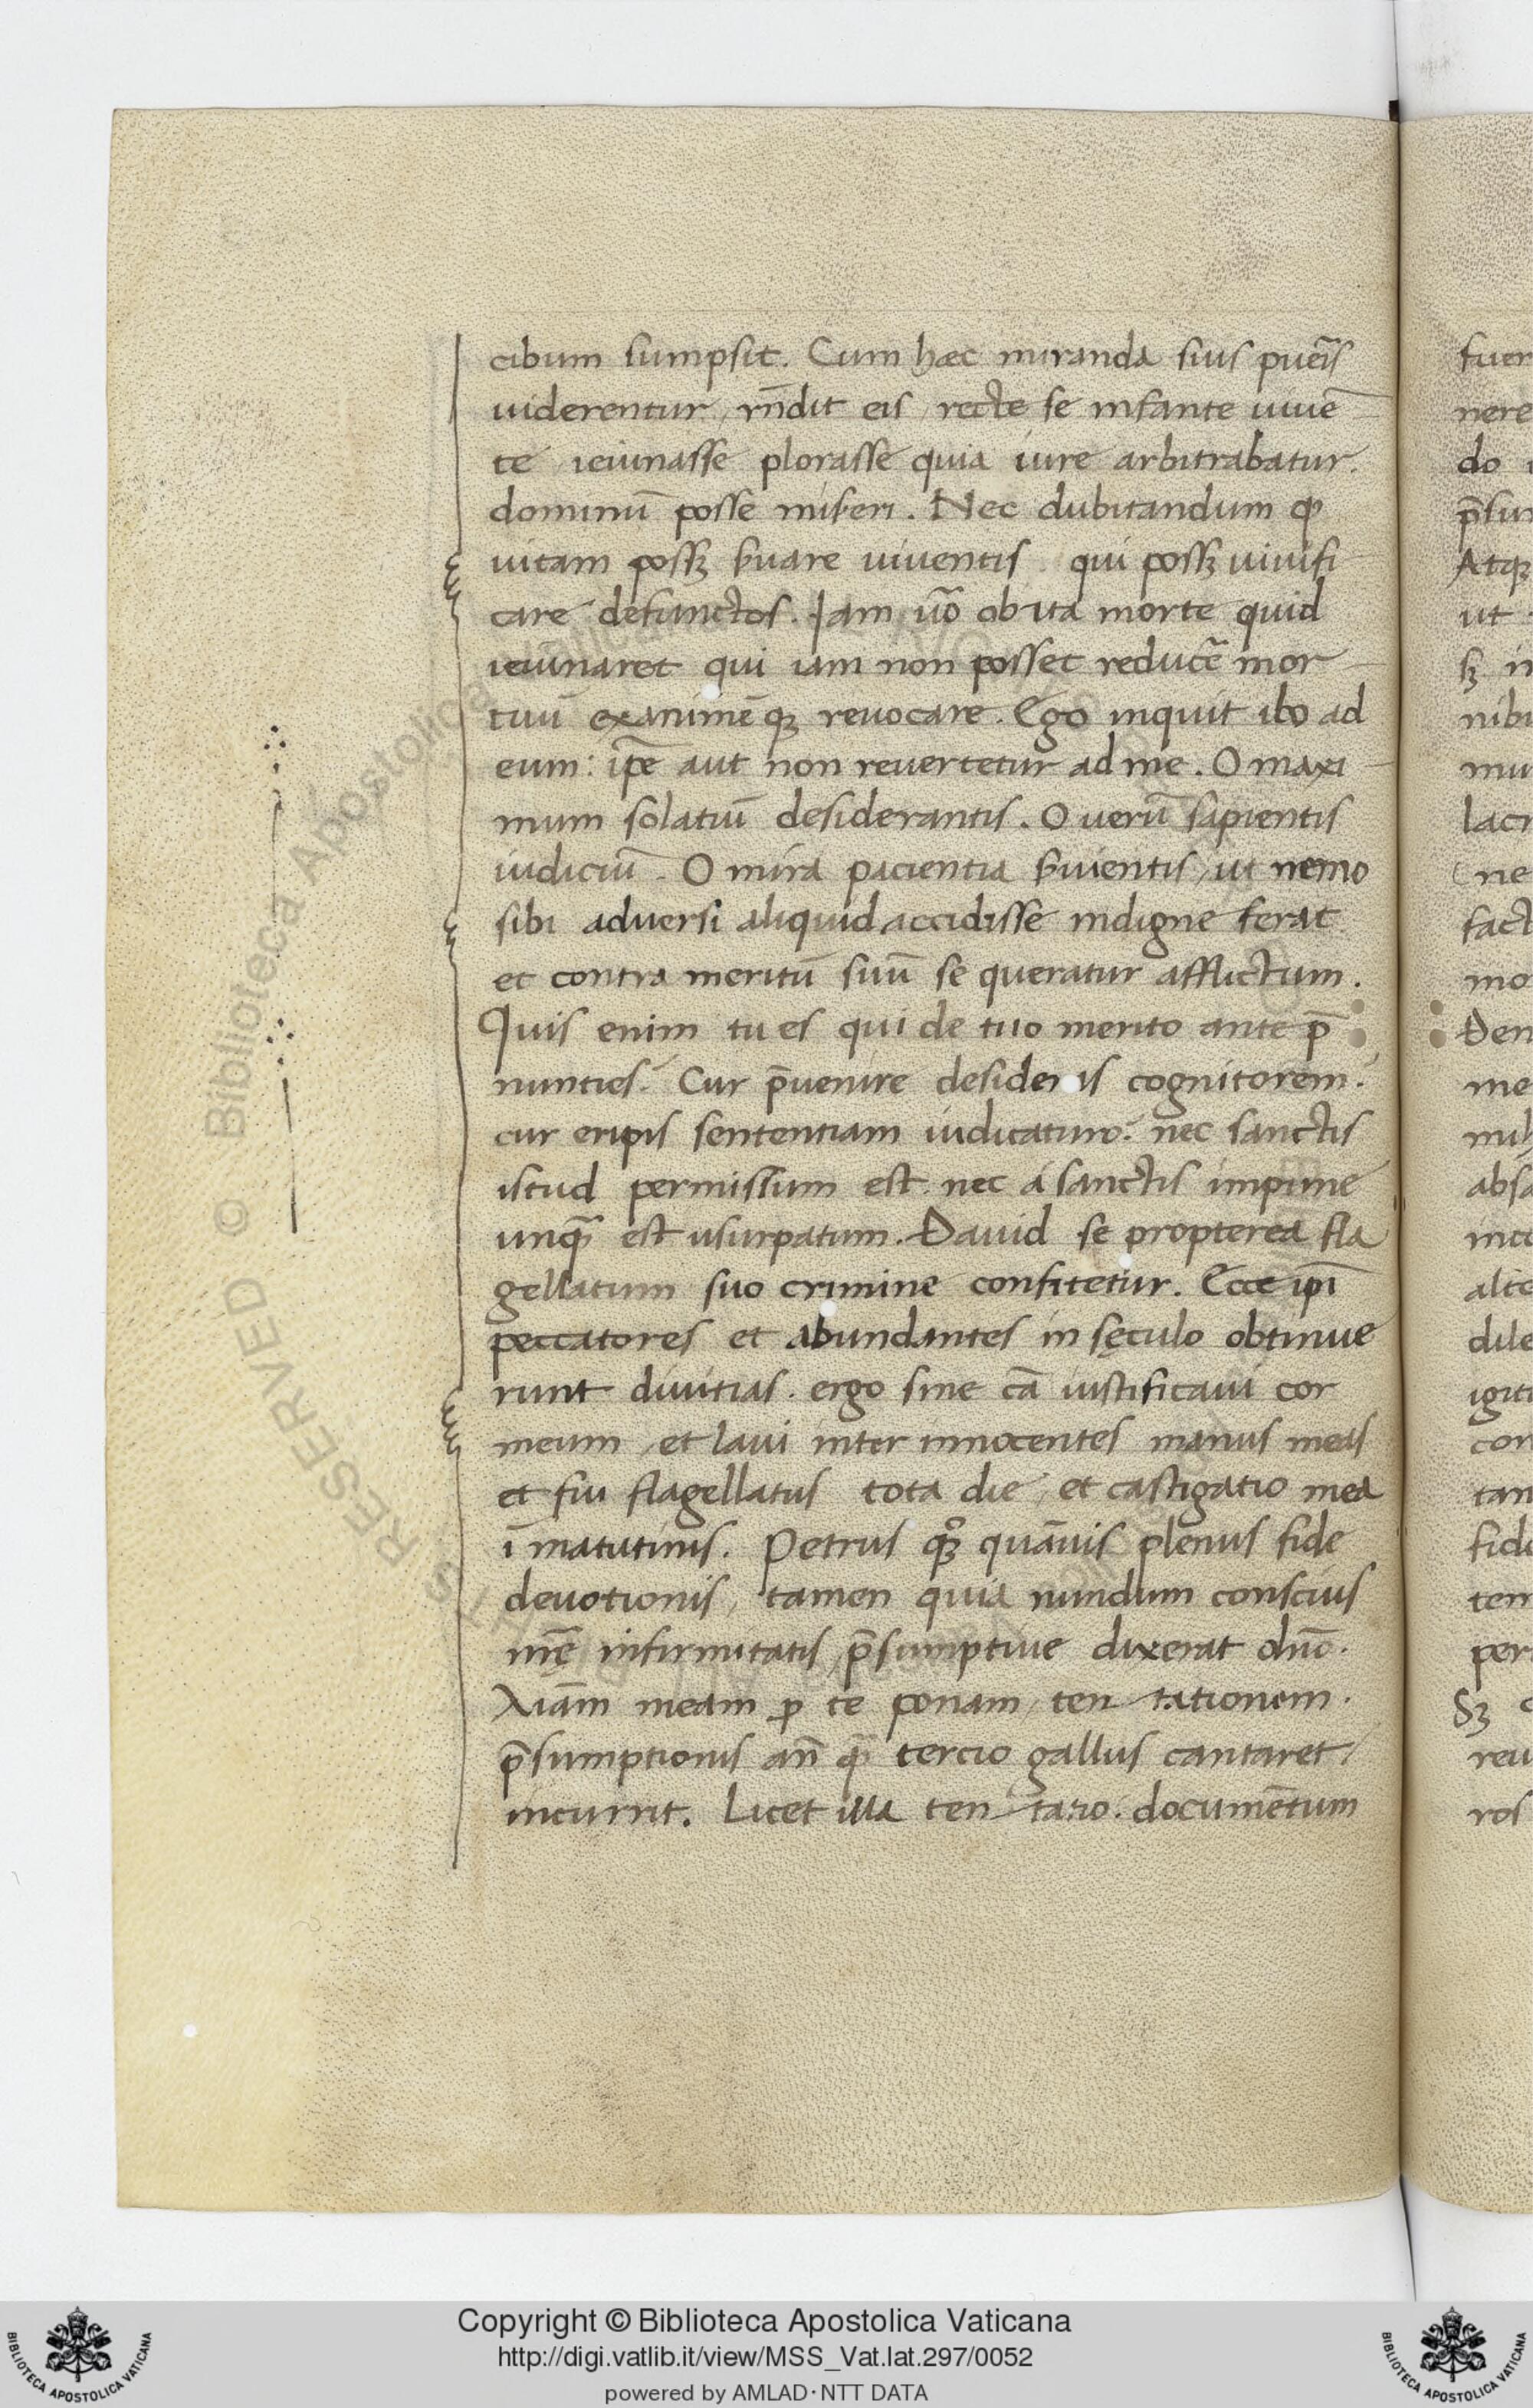 cibum sumpsit. Cum hæc miranda suis puĕis
uiderentur, rn̄dit eis, recte se infante uiuē
te, ieiunasse plorasse quia iure arbitrabatur.
dominū posse miseri. Nec dubitandum ꝙ
uitam possꝫ ẜuare uiuentis qui possꝫ uiuifi
care defunctos. Iam uō obita morte quid
ieiunaret qui iam non posset reducē mor
tuū exanimē qꝫ reuocare. Ego inquit ibo ad
eum: ip̄e aut non reuertetur ad me. O maxi
mum solatiū desiderantis. O uerū sapientis
iudiciū. O mira pacientia ẜuientis, ut nemo
sibi aduersi aliquid accidisse indigne ferat
et contra meritū suū se queratur afflictum.
Quis enim tu es qui de tuo merito ante p̄
nunties. Cur p̄uenire desideris cognitorem.
cur eripis sententiam iudicaturo. nec sanctis
istud permissum est nec a sanctis impune
unqꝫ̄ est usurpatum. Dauid se propterea fla
gellatum suo crimine confitetur. Ecce ip̄i
peccatores et abundantes in sęculo obtinue
runt diuitias. ergo sine cā iustificaui cor
meum, et laui inter innocentes manus meas
et fui flagellatus tota die, et castigatio mea
ī matutinis. Petrus qꝫ̊ quāuis plenus fide
deuotionis, tamen quia nundum conscius
nr̄ę infirmitatis, p̄sumptiue dixerat dn̄o.
Aīam meam ꝑ te ponam, ten tationem.
p̄sumptionis an̄ ꝙ̄ tercio gallus cantaret,
incurrit. Licet illa ten tatio. documētum
fuer
nere
do
p̄sum
Atqꝫ
ut
sꝫ in
nibu
mu
lacr
ne
fact
mo
Den
me
mih
absa
inco
alte
dile
igitu
con
tan
fide
tem
per
Sꝫ c
reu
ros
Biblioteca Apostolica
RESERVED © Biblioteca Apostolica
Copyright © Biblioteca Apostolica Vaticana
http://digi.vatlib.it/view/MSS_Vat.lat.297/0052
powered by AMLAD·NTT DATA
BIBLIOTECA APOSTOLICA VATICANA
BIBLIOTECA APOSTOLICA VATICANA